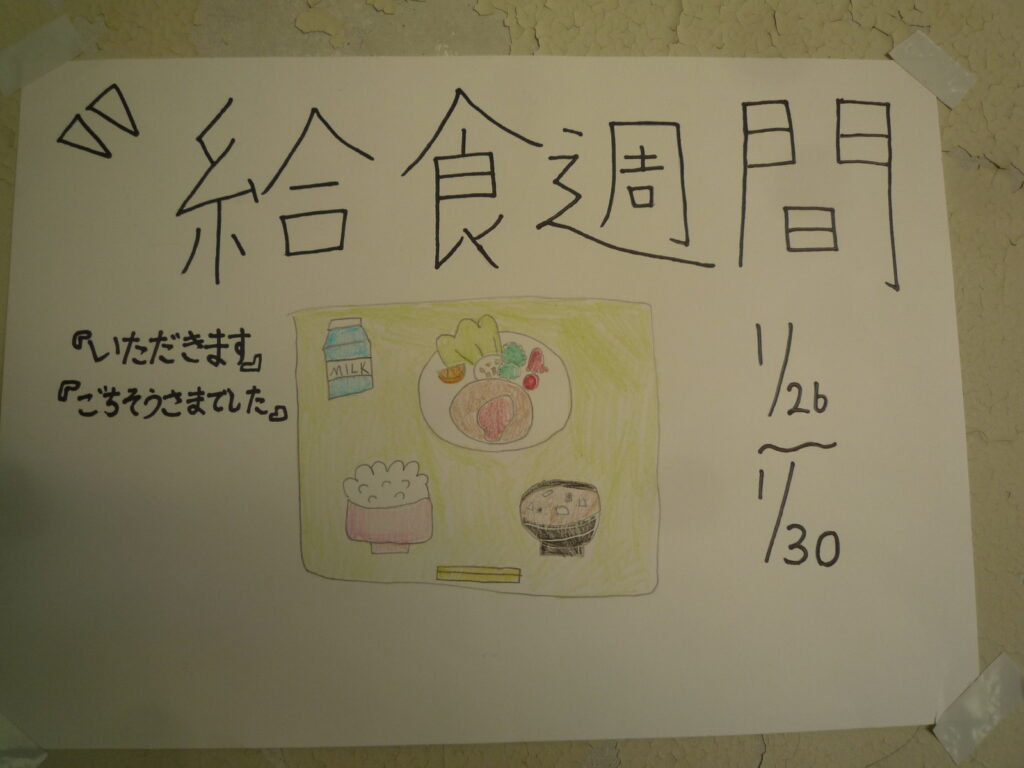 給食週間
『いただきます』
『ごちそうさまでした。』
MILK
1/26
〜
1/30